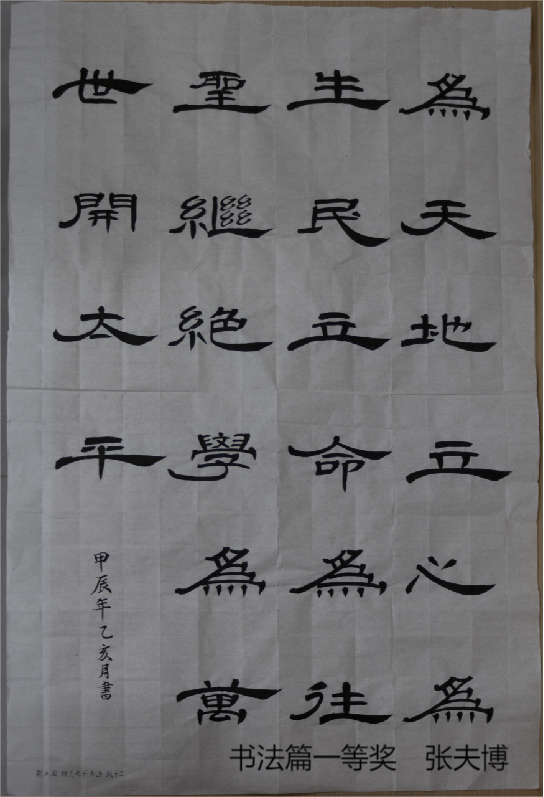 為天地立心為
生民立命為往
聖繼絕學為萬
世開太平
甲辰年乙亥月書
书法篇一等奖 张夫博